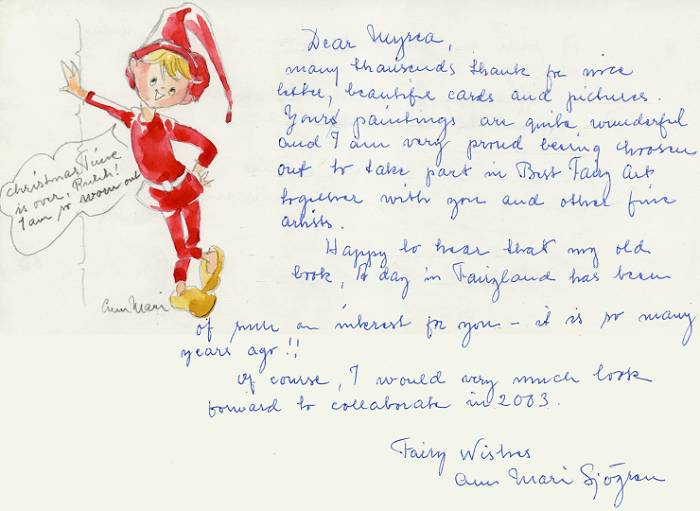 Dear Myrea,
many thausends thank for nice
letter, beautiful cards and pictures.
Yours paintings are quite wunderful
and I am very proud being choosen
out to take part in Best Fairy Art
together with you and other fine
artists.
Happy to hear that my old
book, A day in Fairyland has been
of such an interest for you – it is so many
years ago!!
Of course, I would very much look
forward to collaborate in 2003.
Fairy Wishes
Ann Mari Sjögren
Christmas Time
is over, Puch!
I am so worn out
Ann Mari